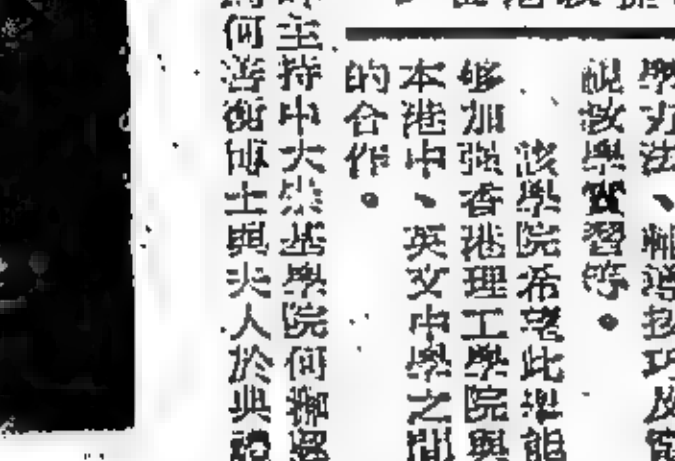 學方法、輔導技巧及
視敎學實習等。
該學院希望此舉能
够加强香港理工學院與
本港中、英文中學之間
的合作。
主持中大崇基學院何
何善衡博士與夫人於典禮